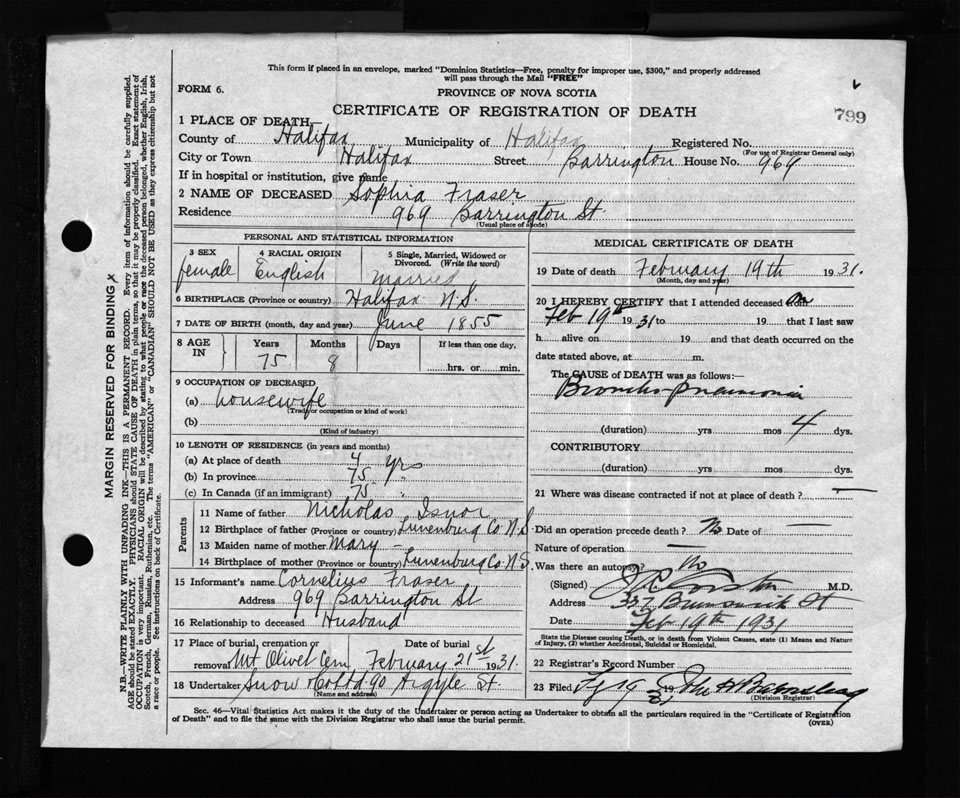 This form if placed in an envelope, marked "Dominion Statistics—Free, penalty for improper use, $300," and properly addressed
will pass through the Mail "FREE"
FORM 6.
PROVINCE OF NOVA SCOTIA
CERTIFICATE OF REGISTRATION OF DEATH
799
1 PLACE OF DEATH
County of Halifax Municipality of Halifax Registered No.
(For use of Registrar General only)
City or Town Halifax Street Barrington House No. 969
If in hospital or institution, give name
2 NAME OF DECEASED Sophia Fraser
Residence 969 Barrington St.
(Usual place of abode)
PERSONAL AND STATISTICAL INFORMATION
3 SEX female
4 RACIAL ORIGIN English
5 Single, Married, Widowed or Divorced. (Write the word) Married
6 BIRTHPLACE (Province or country) Halifax N.S.
7 DATE OF BIRTH (month, day and year) June 1855
8 AGE IN Years 75 Months 8 Days If less than one day, hrs. or min.
9 OCCUPATION OF DECEASED
(a) housewife
(Trade or occupation or kind of work)
(b)
(Kind of industry)
10 LENGTH OF RESIDENCE (in years and months)
(a) At place of death 4 yrs
(b) In province 75 "
(c) In Canada (if an immigrant) 75 "
Parents
11 Name of father Nicholas Isnor
12 Birthplace of father (Province or country) Lunenburg Co N.S.
13 Maiden name of mother Mary —
14 Birthplace of mother (Province or country) Lunenburg Co. N.S.
15 Informant's name Cornelius Fraser
Address 969 Barrington St
16 Relationship to deceased Husband
17 Place of burial, cremation or removal Mt Olivet Cem. Date of burial February 21st 1931.
18 Undertaker Snow & Co Ltd 90 Argyle St.
(Name and address)
MEDICAL CERTIFICATE OF DEATH
19 Date of death February 19th 1931.
(Month, day and year)
20 I HEREBY CERTIFY that I attended deceased on
Feb 19th 1931 to 19 that I last saw
h alive on 19 and that death occurred on the
date stated above, at m.
The CAUSE of DEATH was as follows:—
Broncho-pneumonia
(duration) yrs mos 4 dys.
CONTRIBUTORY
(duration) yrs mos dys.
21 Where was disease contracted if not at place of death? —
Did an operation precede death? No Date of —
Nature of operation —
Was there an autopsy? No
(Signed) M.D.
Address 337 Brunswick St
Date Feb 19th 1931
State the Disease causing Death, or in death from Violent Causes, state (1) Means and Nature
of Injury, (2) whether Accidental, Suicidal or Homicidal.
22 Registrar's Record Number
23 Filed 19 31 John H Barnstead
(Division Registrar)
Sec. 46—Vital Statistics Act makes it the duty of the Undertaker or person acting as Undertaker to obtain all the particulars required in the "Certificate of Registration
of Death" and to file the same with the Division Registrar who shall issue the burial permit.
(OVER)
MARGIN RESERVED FOR BINDING
N.B.—WRITE PLAINLY WITH UNFADING INK—THIS IS A PERMANENT RECORD. Every item of information should be carefully supplied.
AGE should be stated EXACTLY. PHYSICIANS should STATE CAUSE OF DEATH in plain terms, so that it may be properly classified. Exact statement of
OCCUPATION is very important. RACIAL ORIGIN will be described by stating to what people or race the deceased person belonged, whether English, Irish,
Scotch, French, German, Russian, Ruthenian, etc. The terms "AMERICAN" or "CANADIAN" SHOULD NOT BE USED as they express citizenship but not
a race or people. See instructions on back of Certificate.